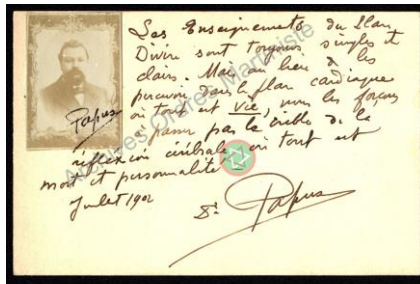 Les Enseignements du Plan
Divin sont toujours simples et
clairs. Mais au lieu de les
percevoir dans le plan cardiaque
où tout est vie, nous les forçons
à passer par le crible de la
réflexion cérébrale où tout est
mort et personnalité
Juillet 1902
Dr Papus
Papus
Archives Ordre Martiniste